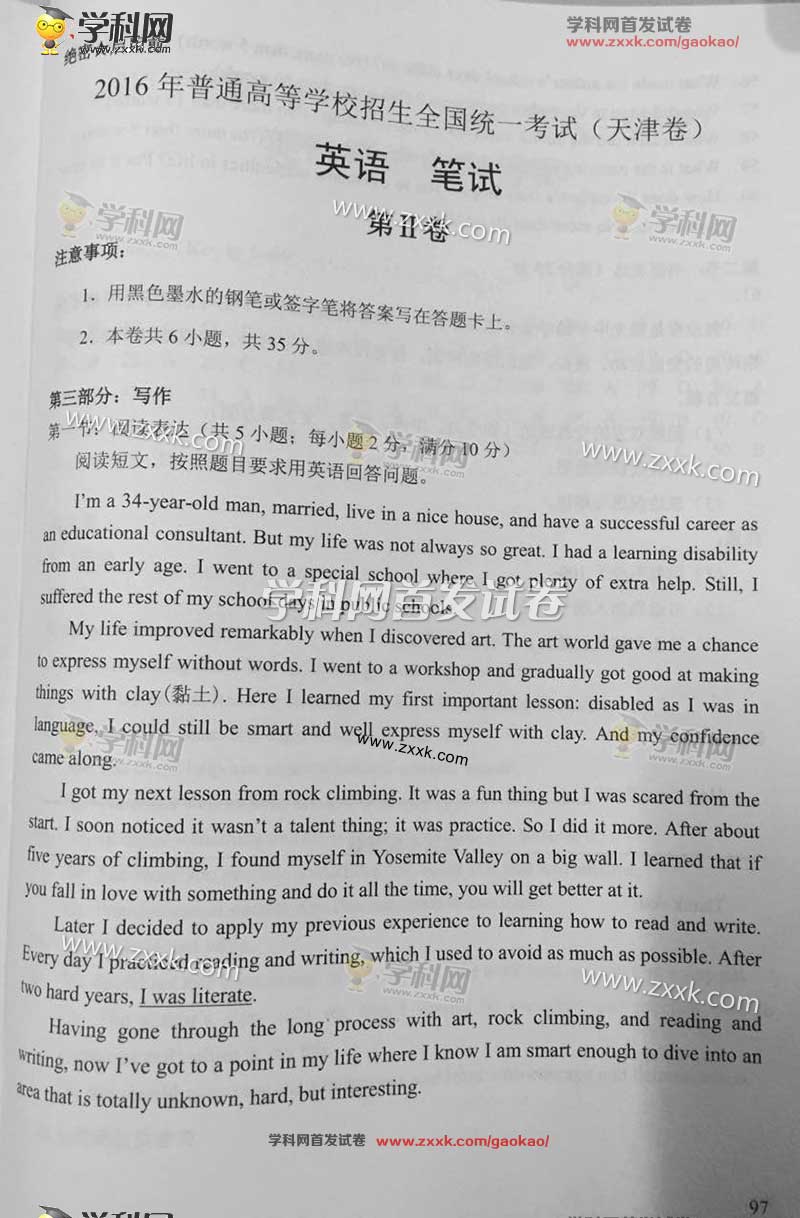 学科网
zxxk.com
学科网首发试卷
www.zxxk.com/gaokao/
绝密
2016 年普通高等学校招生全国统一考试（天津卷）
英语 笔试
学科网
zxxk.com
www.zxxk.com
学科网
zxxk.com
第 II 卷
注意事项：
1．用黑色墨水的钢笔或签字笔将答案写在答题卡上。
2．本卷共 6 小题，共 35 分。
第三部分：写作
www.zxxk.com
第一节：阅读表达（共 5 小题；每小题 2 分，满分 10 分）
学科网
zxxk.com
www.zxxk.com
阅读短文，按照题目要求用英语回答问题。
I'm a 34-year-old man, married, live in a nice house, and have a successful career as
an educational consultant. But my life was not always so great. I had a learning disability
from an early age. I went to a special school where I got plenty of extra help. Still, I
学科网首发试卷
suffered the rest of my school days in public schools.
My life improved remarkably when I discovered art. The art world gave me a chance
to express myself without words. I went to a workshop and gradually got good at making
things with clay(黏土). Here I learned my first important lesson: disabled as I was in
language, I could still be smart and well express myself with clay. And my confidence
学科网
zxxk.com
www.zxxk.com
学科网
zxxk.com
came along.
I got my next lesson from rock climbing. It was a fun thing but I was scared from the
start. I soon noticed it wasn't a talent thing; it was practice. So I did it more. After about
five years of climbing, I found myself in Yosemite Valley on a big wall. I learned that if
you fall in love with something and do it all the time, you will get better at it.
Later I decided to apply my previous experience to learning how to read and write.
www.zxxk.com
Every day I practiced reading and writing, which I used to avoid as much as possible. After
学科网
zxxk.com
www.zxxk.com
two hard years, I was literate.
Having gone through the long process with art, rock climbing, and reading and
writing, now I've got to a point in my life where I know I am smart enough to dive into an
area that is totally unknown, hard, but interesting.
学科网首发试卷
www.zxxk.com/gaokao/
97
学科网
学科网